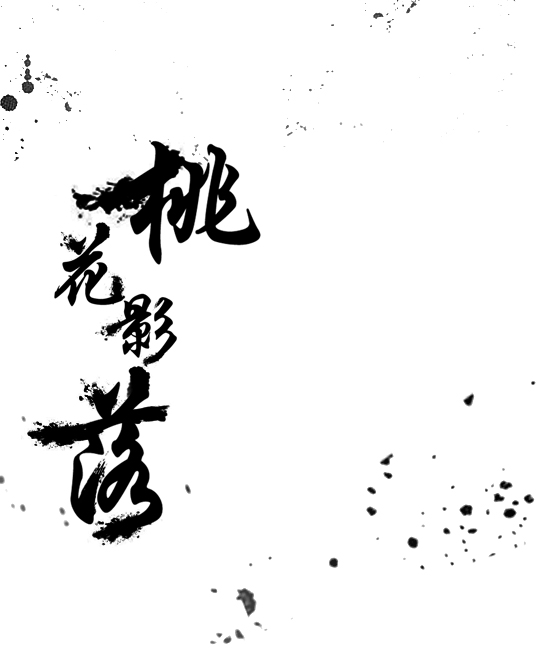 桃花影落